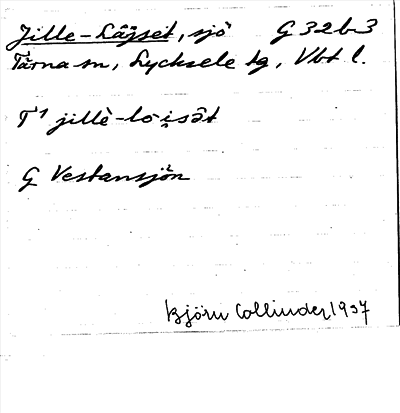 Jille-Låjset, sjö G 32 b 3
Tärna sn, Lycksele tg, Vbt l.
T¹ jillè-lō-i̯sə̄t
G Vestansjön
Björn Collinder 1937